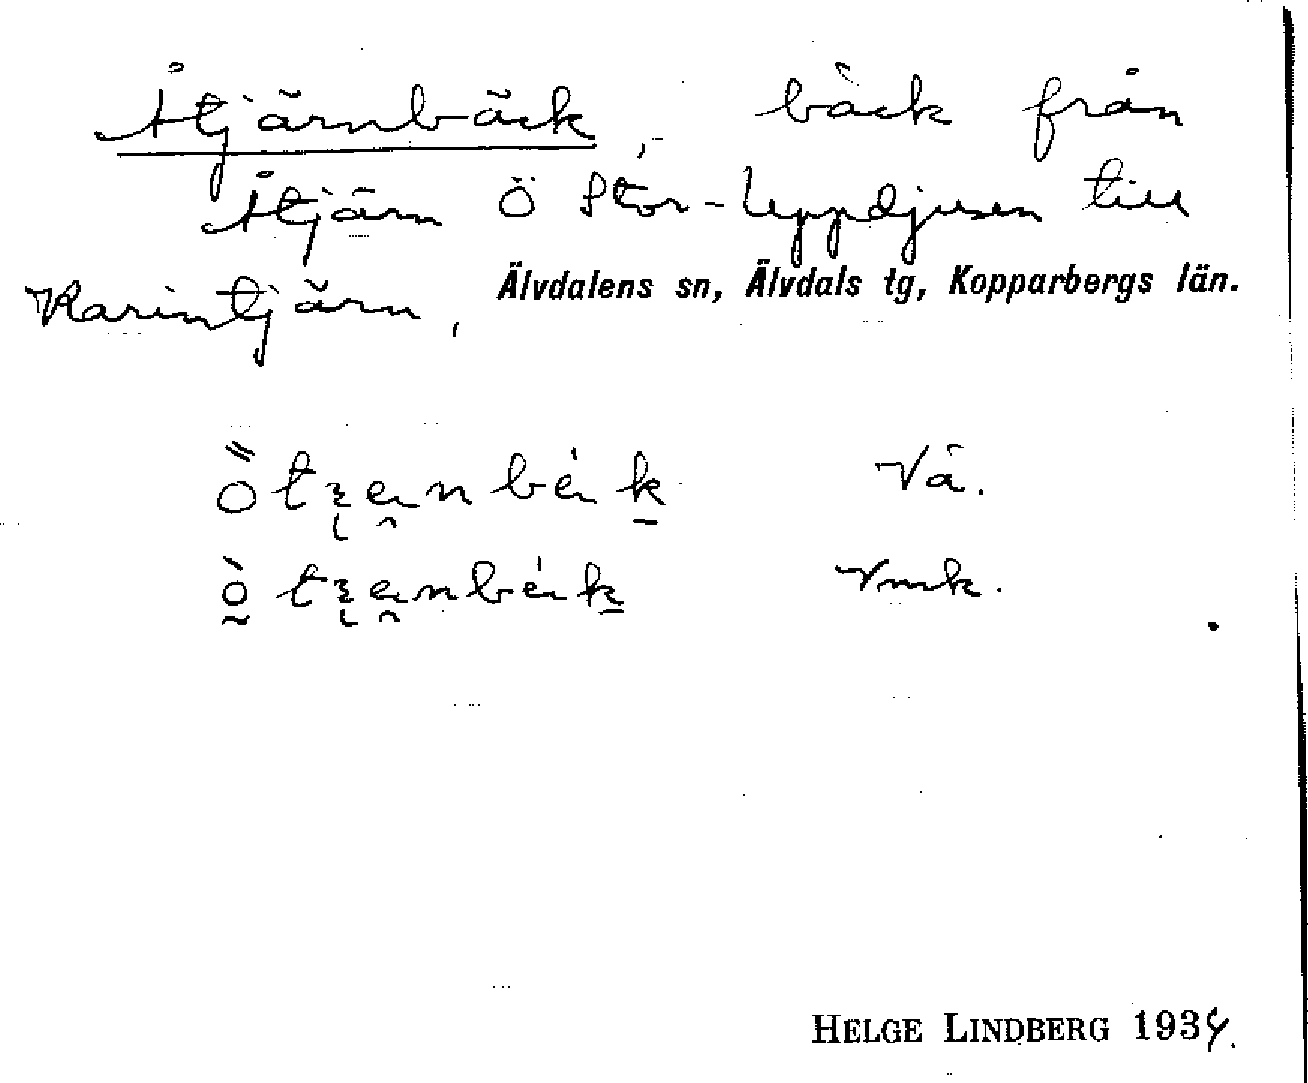 Åtjärnbäck, bäck från
Åtjärn Ö Stor-Uppdjusen till
Karintjärn,
Älvdalens sn, Älvdals tg, Kopparbergs län.
Vå.
Vmk.
HELGE LINDBERG 1934.